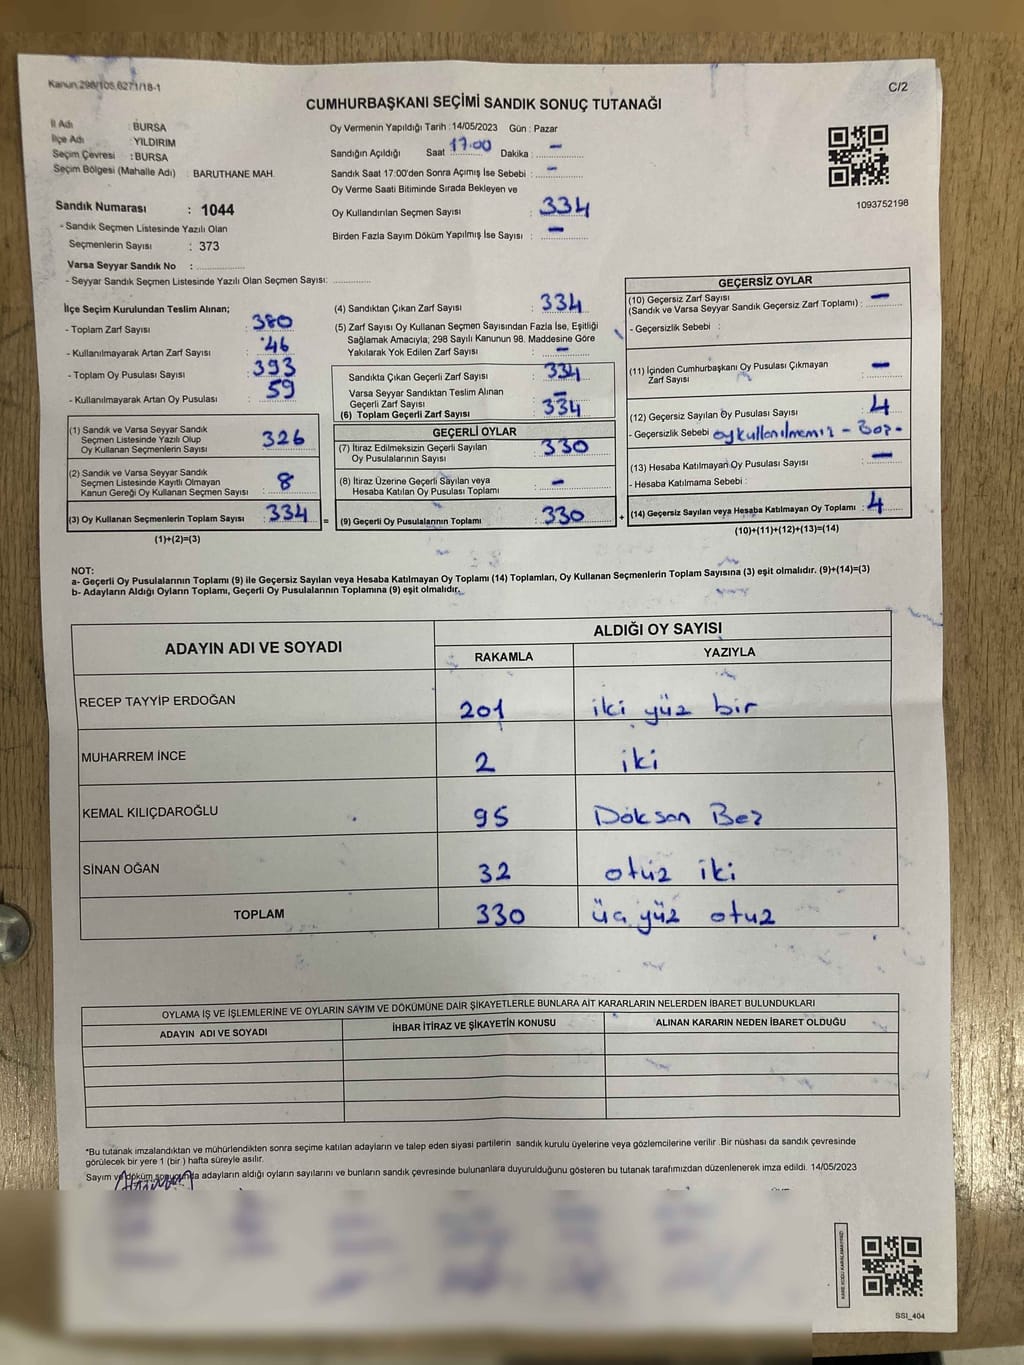 Kanun:298/105,6271/18-1
C/2
CUMHURBAŞKANI SEÇİMİ SANDIK SONUÇ TUTANAĞI
İl Adı : BURSA
İlçe Adı : YILDIRIM
Seçim Çevresi : BURSA
Seçim Bölgesi (Mahalle Adı) : BARUTHANE MAH.
Sandık Numarası : 1044
- Sandık Seçmen Listesinde Yazılı Olan
Seçmenlerin Sayısı : 373
Varsa Seyyar Sandık No :
- Seyyar Sandık Seçmen Listesinde Yazılı Olan Seçmen Sayısı:
Oy Vermenin Yapıldığı Tarih : 14/05/2023 Gün : Pazar
Sandığın Açıldığı Saat 17:00 Dakika : –
Sandık Saat 17:00'den Sonra Açımış İse Sebebi : –
Oy Verme Saati Bitiminde Sırada Bekleyen ve
Oy Kullandırılan Seçmen Sayısı : 334
Birden Fazla Sayım Döküm Yapılmış İse Sayısı : –
1093752198
İlçe Seçim Kurulundan Teslim Alınan;
- Toplam Zarf Sayısı : 380
- Kullanılmayarak Artan Zarf Sayısı : 46
- Toplam Oy Pusulası Sayısı : 393
- Kullanılmayarak Artan Oy Pusulası : 59
(1) Sandık ve Varsa Seyyar Sandık
Seçmen Listesinde Yazılı Olup
Oy Kullanan Seçmenlerin Sayısı : 326
(2) Sandık ve Varsa Seyyar Sandık
Seçmen Listesinde Kayıtlı Olmayan
Kanun Gereği Oy Kullanan Seçmen Sayısı : 8
(3) Oy Kullanan Seçmenlerin Toplam Sayısı : 334
(1)+(2)=(3)
=
(4) Sandıktan Çıkan Zarf Sayısı : 334
(5) Zarf Sayısı Oy Kullanan Seçmen Sayısından Fazla İse, Eşitliği
Sağlamak Amacıyla; 298 Sayılı Kanunun 98. Maddesine Göre
Yakılarak Yok Edilen Zarf Sayısı : –
Sandıkta Çıkan Geçerli Zarf Sayısı : 334
Varsa Seyyar Sandıktan Teslim Alınan
Geçerli Zarf Sayısı : –
(6) Toplam Geçerli Zarf Sayısı : 334
GEÇERLİ OYLAR
(7) İtiraz Edilmeksizin Geçerli Sayılan
Oy Pusulalarının Sayısı : 330
(8) İtiraz Üzerine Geçerli Sayılan veya
Hesaba Katılan Oy Pusulası Toplamı : –
(9) Geçerli Oy Pusulalarının Toplamı : 330
+
GEÇERSİZ OYLAR
(10) Geçersiz Zarf Sayısı
(Sandık ve Varsa Seyyar Sandık Geçersiz Zarf Toplamı) : –
- Geçersizlik Sebebi :
(11) İçinden Cumhurbaşkanı Oy Pusulası Çıkmayan
Zarf Sayısı : –
(12) Geçersiz Sayılan Oy Pusulası Sayısı : 4
- Geçersizlik Sebebi : oy kullanılmamış - Boş -
(13) Hesaba Katılmayan Oy Pusulası Sayısı : –
- Hesaba Katılmama Sebebi :
(14) Geçersiz Sayılan veya Hesaba Katılmayan Oy Toplamı : 4
(10)+(11)+(12)+(13)=(14)
NOT:
a- Geçerli Oy Pusulalarının Toplamı (9) ile Geçersiz Sayılan veya Hesaba Katılmayan Oy Toplamı (14) Toplamları, Oy Kullanan Seçmenlerin Toplam Sayısına (3) eşit olmalıdır. (9)+(14)=(3)
b- Adayların Aldığı Oyların Toplamı, Geçerli Oy Pusulalarının Toplamına (9) eşit olmalıdır.
ADAYIN ADI VE SOYADI
ALDIĞI OY SAYISI
RAKAMLA YAZIYLA
RECEP TAYYİP ERDOĞAN 201 iki yüz bir
MUHARREM İNCE 2 iki
KEMAL KILIÇDAROĞLU 95 Doksan Beş
SİNAN OĞAN 32 otuz iki
TOPLAM 330 üç yüz otuz
OYLAMA İŞ VE İŞLEMLERİNE VE OYLARIN SAYIM VE DÖKÜMÜNE DAİR ŞİKAYETLERLE BUNLARA AİT KARARLARIN NELERDEN İBARET BULUNDUKLARI
ADAYIN ADI VE SOYADI İHBAR İTİRAZ VE ŞİKAYETİN KONUSU ALINAN KARARIN NEDEN İBARET OLDUĞU
*Bu tutanak imzalandıktan ve mühürlendikten sonra seçime katılan adayların ve talep eden siyasi partilerin sandık kurulu üyelerine veya gözlemcilerine verilir .Bir nüshası da sandık çevresinde
görülecek bir yere 1 (bir ) hafta süreyle asılır.
Sayım ve döküm sonucunda adayların aldığı oyların sayılarını ve bunların sandık çevresinde bulunanlara duyurulduğunu gösteren bu tutanak tarafımızdan düzenlenerek imza edildi. 14/05/2023
KARE KODU KARALAMAYINIZ!
SSI_404